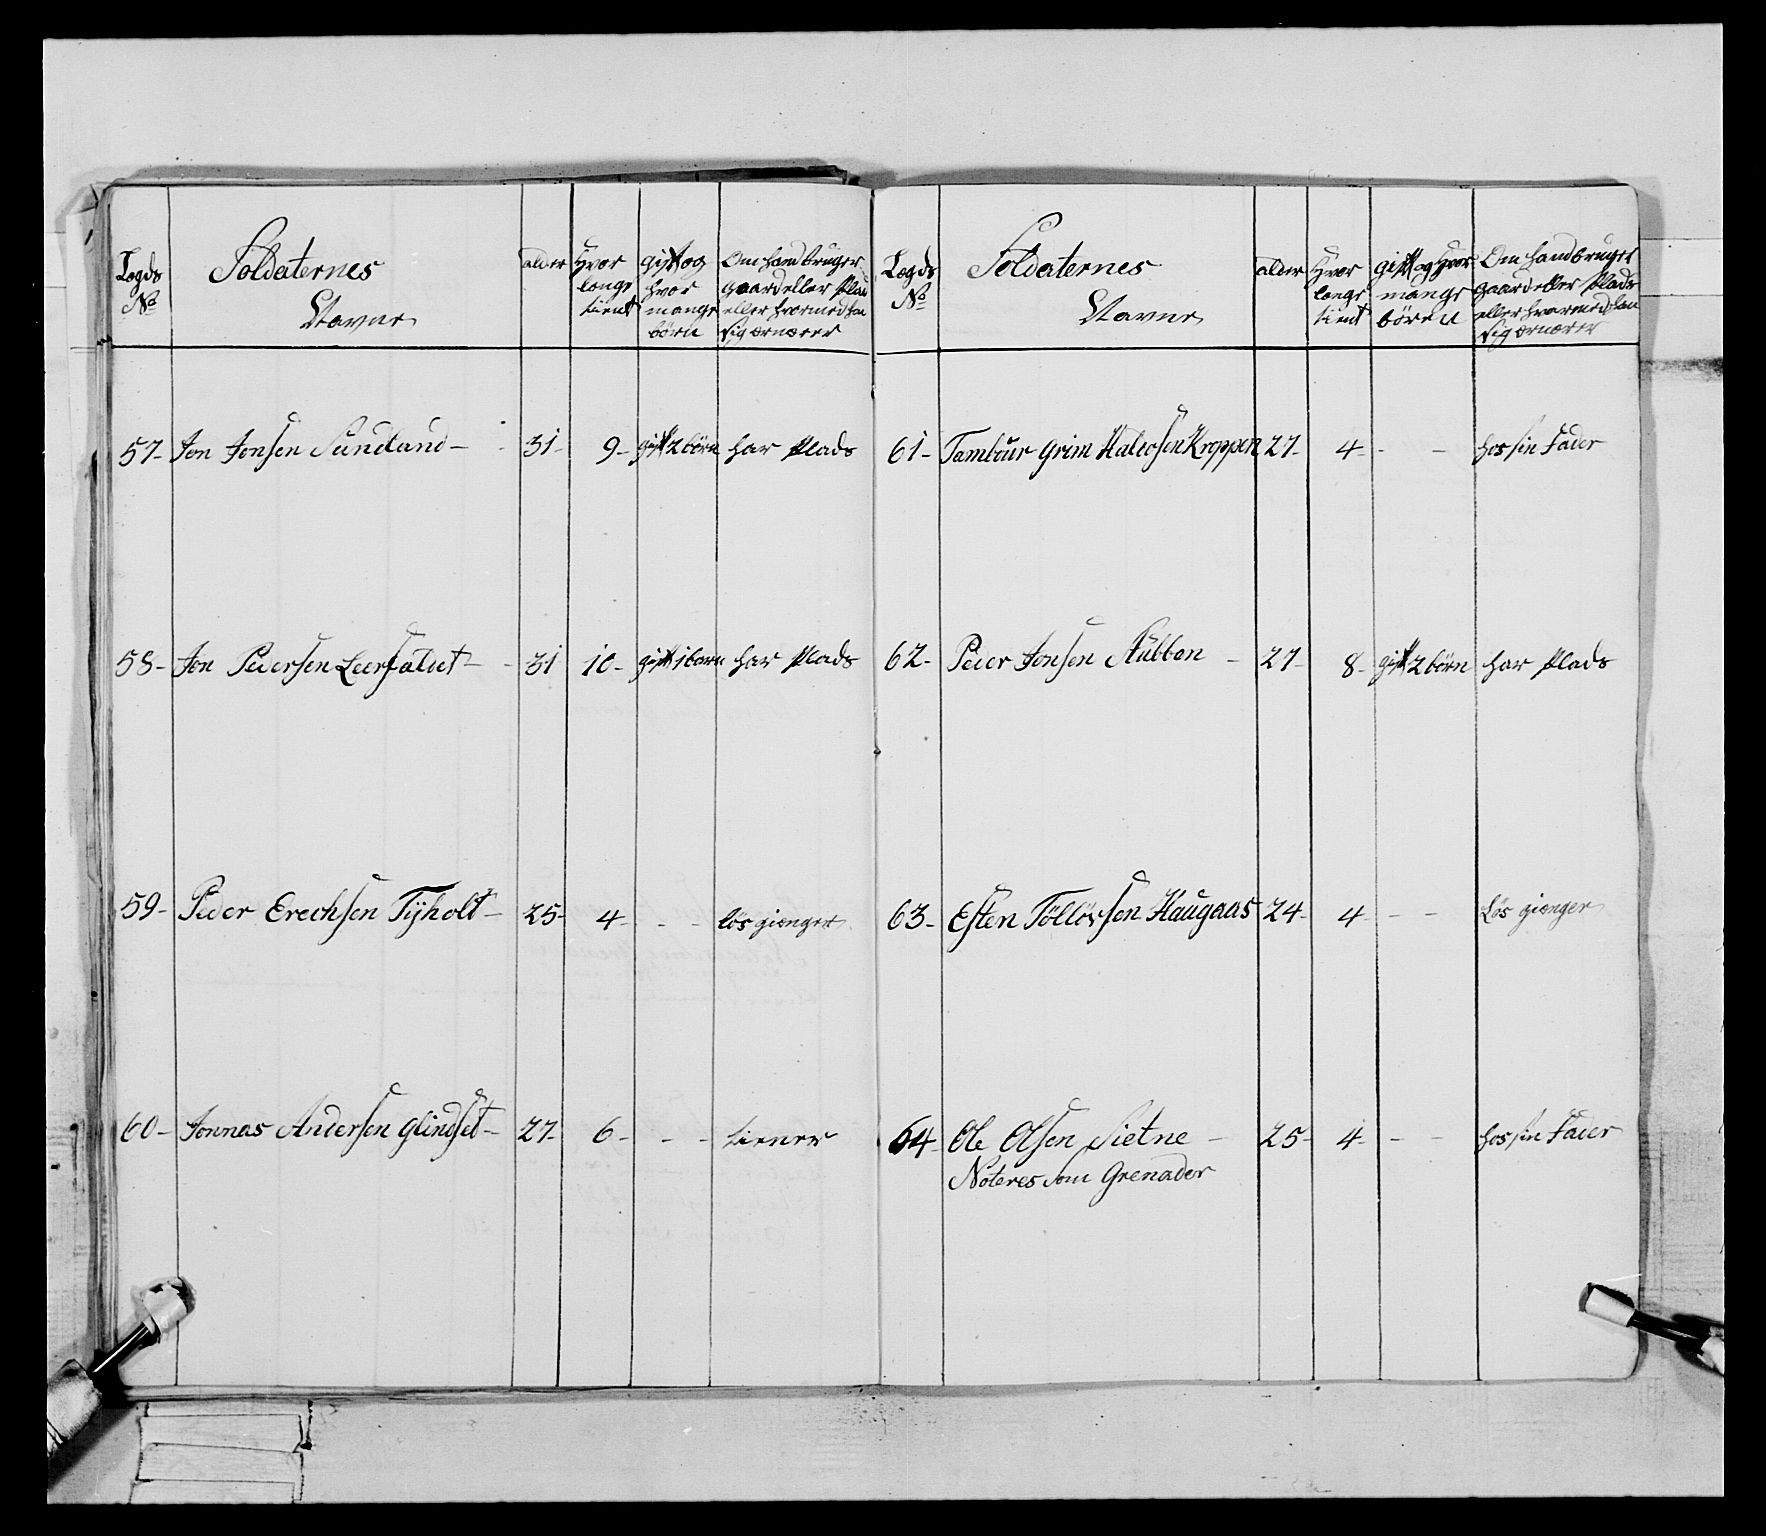 Legds No | Soldaternes Navne | alder | Hvor lenge tient | gift og hvor mange börn | Om hand bruger gaard eller Plads eller hvormed han sig ernærer
57- | Jon Jonsen Sundland- | 31- | 9- | gift 2 börn | har Plads
58- | Jon Pedersen Leersaldet- | 31 | 10- | gift 1 barn | har Plads
59- | Peder Erechsen Tÿholt- | 25- | 4- | - - | lös giænger
60- | Jonnas Andersen Glindset- | 27- | 6- | - - | tiener
Legds No | Soldaternes Navne | alder | Hvor lenge tient | gift og Hvor mange börn | Om hand bruger gaard eller Plads eller hvormed han sig ernærer
61- | Tambuur Grim Kroppen | 27- | 4- | - - | hos sin Fader
62- | Peder Jonsen Stubben - | 27- | 8- | gift 2 börn | har Plads
63- | Esten Töllövsen Haugaas | 24- | 4- | - - | Lös giænger
64- | Ole Olsen Sietne - | 25- | 4- | - - | hos sin Fader
Noteres som Grenader